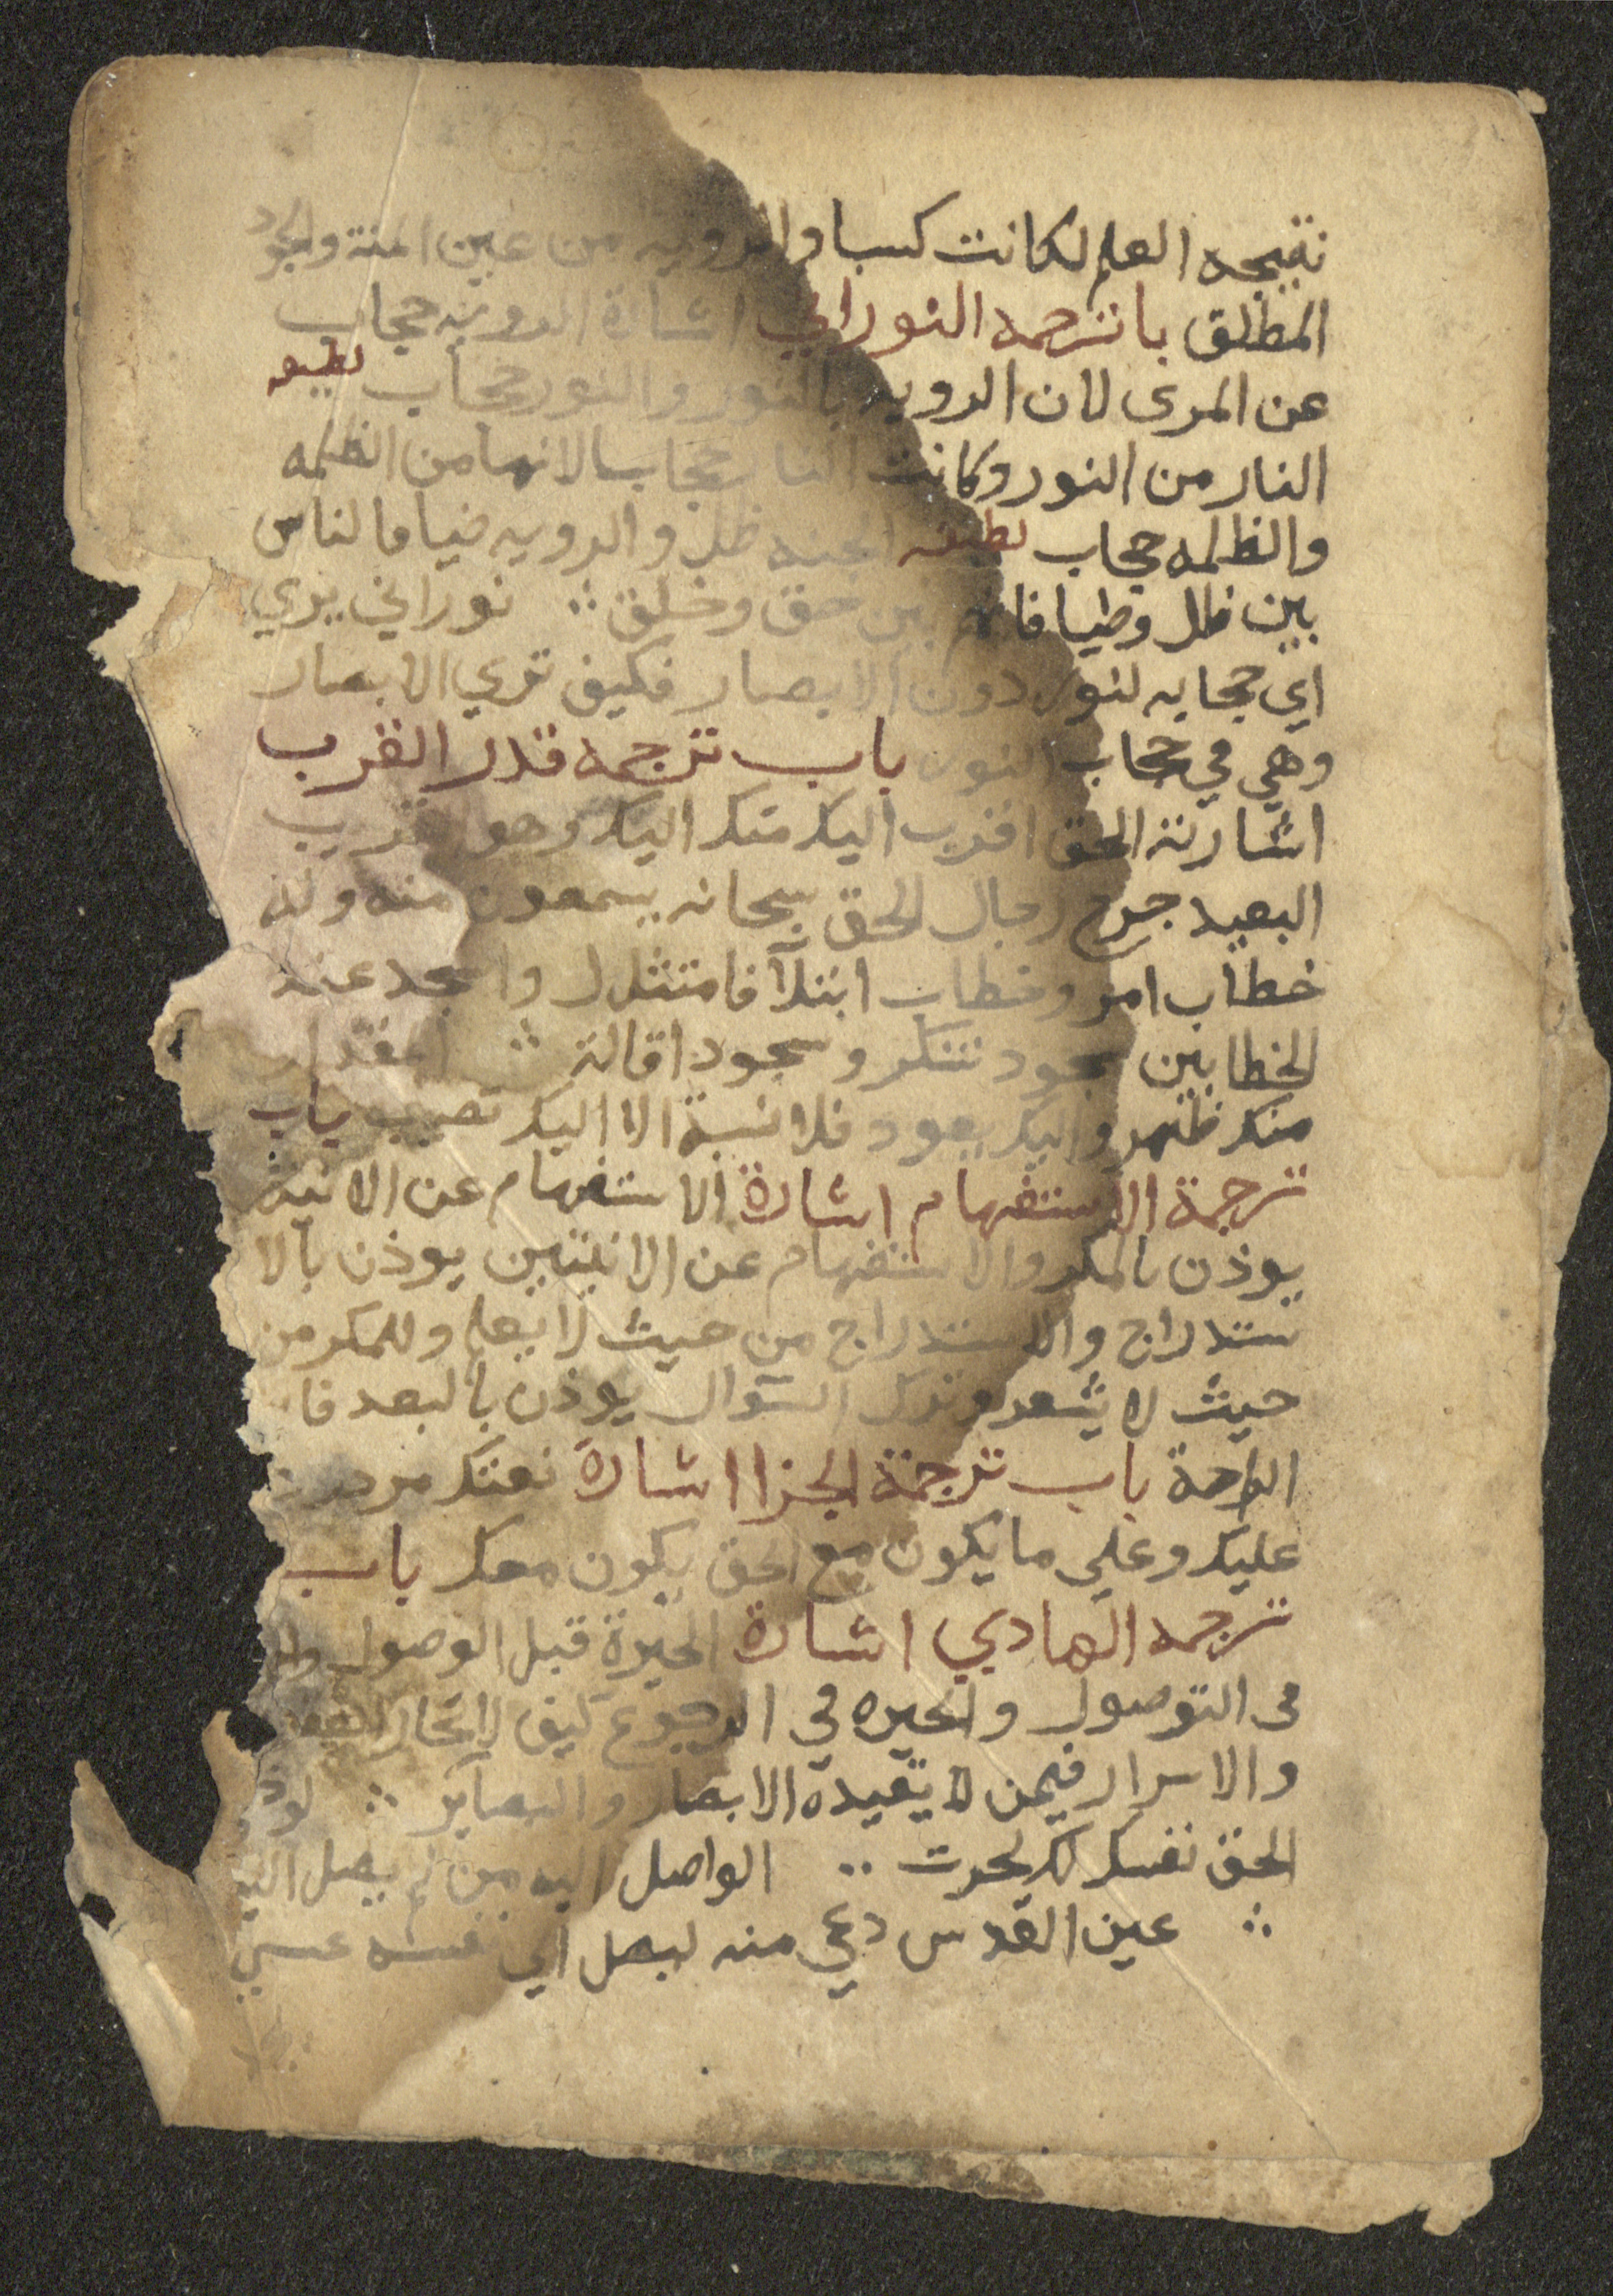 نتيجه العلم لكانت كسبا والرويه من عين المنة والجود
المطلق با ترجمه النوراني اشارة الرويه حجاب
عن المرى لان الرويه بالنور والنور حجاب لطيفه
النار من النور وكانت النار حجابا لانها من الظلمه
والظلمه حجاب لطيفه الجنه ظل والرويه ضيا فالناس
بين ظل وضيا فانهم بين حق وخلق ∴ نوراني يري
اي حجابه لنور دون الابصار فكيف تري الابصار
وهي في حجاب النور باب ترجمه قدر القرب
اشارته الحق اقرب اليك منك اليك وهو القريب
البعيد جرح رجال الحق سبحانه يسمعون منه وله
خطاب امر وخطاب ابتلآ فامتثل واسجد عند
الخطابين سجود شكر وسجود اقالة ∴
منك ظهر واليك يعود فلا نسبة الا اليك باب
ترجمة الاستفهام اشارة الاستفهام عن الاشه
يوذن بالمكر والاستفهام عن الاثنتين يوذن بالا
ستدراج والاستدراج من حيث لا يعلم وللمكر من
حيث لا يشعر وترك السوال يوذن بالبعد فا
الراحة باب ترجمة الجزا اشارة نعتك مردود
عليك وعلي ما يكون مع الحق يكون معك باب
ترجمه الهادي اشارة الحيرة قبل الوصول وا
في التوصول والحيره في الرجوع كيف لا تحار العقول
والاسرار فيمن لا تقيده الابصار والبصاير ∴
الحق نفسك لك لحرت ∴ الواصل اليه من لم يصل اليه
∴ عين القدس دعي منه ليصل الي نفسه عسي